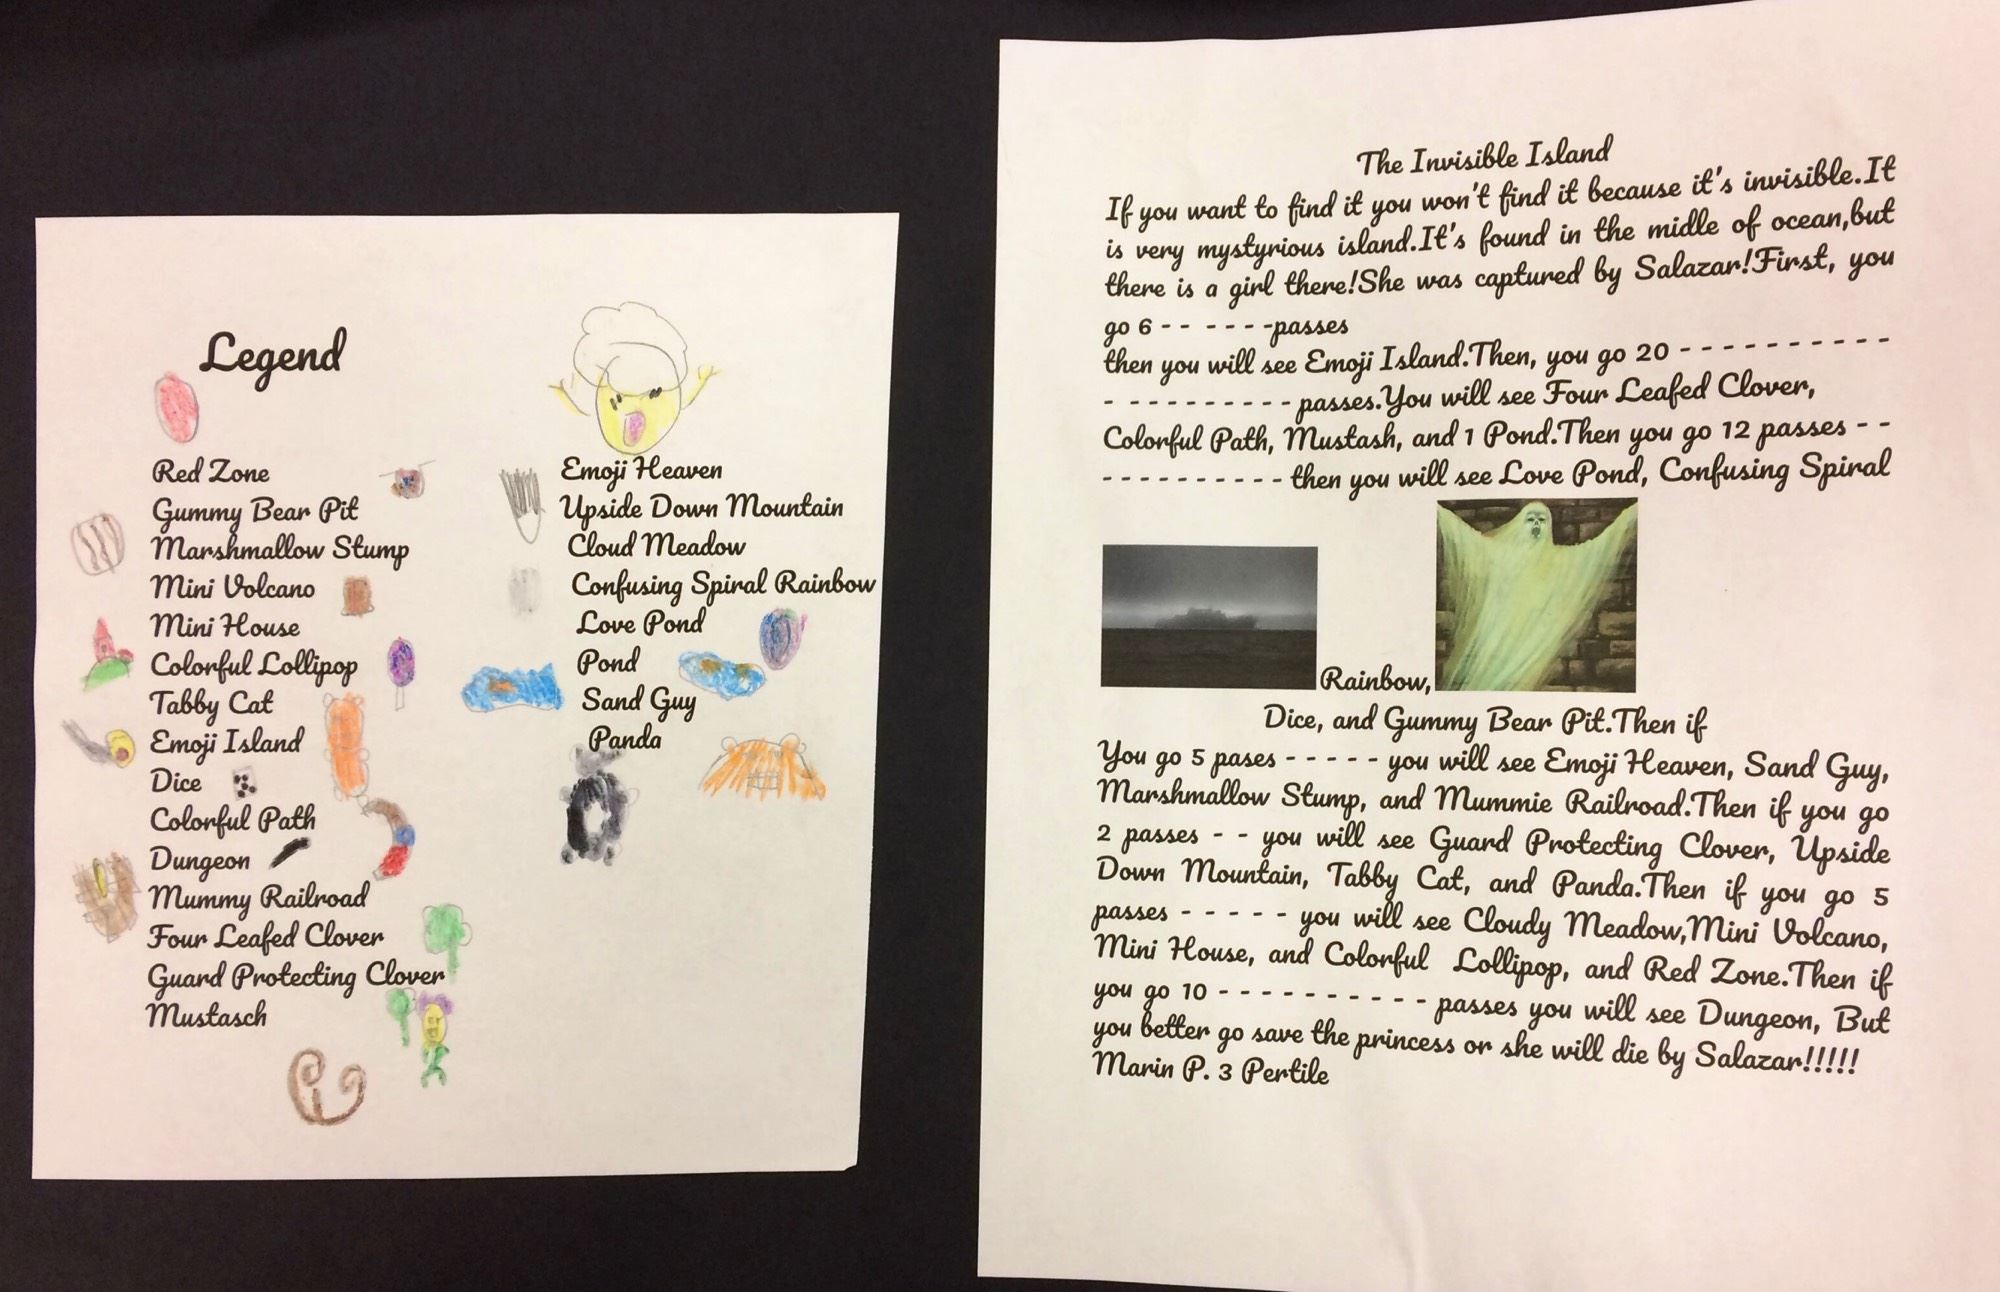 Legend
Red Zone
Gummy Bear Pit
Marshmallow Stump
Mini Volcano
Mini House
Colorful Lollipop
Tabby Cat
Emoji Island
Dice
Colorful Path
Dungeon
Mummy Railroad
Four Leafed Clover
Guard Protecting Clover
Mustasch
Emoji Heaven
Upside Down Mountain
Cloud Meadow
Confusing Spiral Rainbow
Love Pond
Pond
Sand Guy
Panda
The Invisible Island
If you want to find it you won't find it because it's invisible.It
is very mystyrious island.It's found in the midle of ocean,but
there is a girl there!She was captured by Salazar!First, you
go 6 - - - - - -passes
then you will see Emoji Island.Then, you go 20 - - - - - - - - - -
- - - - - - - - - - passes.You will see Four Leafed Clover,
Colorful Path, Mustash, and 1 Pond.Then you go 12 passes - -
- - - - - - - - - - then you will see Love Pond, Confusing Spiral
Rainbow,
Dice, and Gummy Bear Pit.Then if
You go 5 pases - - - - - you will see Emoji Heaven, Sand Guy,
Marshmallow Stump, and Mummie Railroad.Then if you go
2 passes - - you will see Guard Protecting Clover, Upside
Down Mountain, Tabby Cat, and Panda.Then if you go 5
passes - - - - - you will see Cloudy Meadow,Mini Volcano,
Mini House, and Colorful Lollipop, and Red Zone.Then if
you go 10 - - - - - - - - - - passes you will see Dungeon, But
you better go save the princess or she will die by Salazar!!!!!
Marin P. 3 Pertile